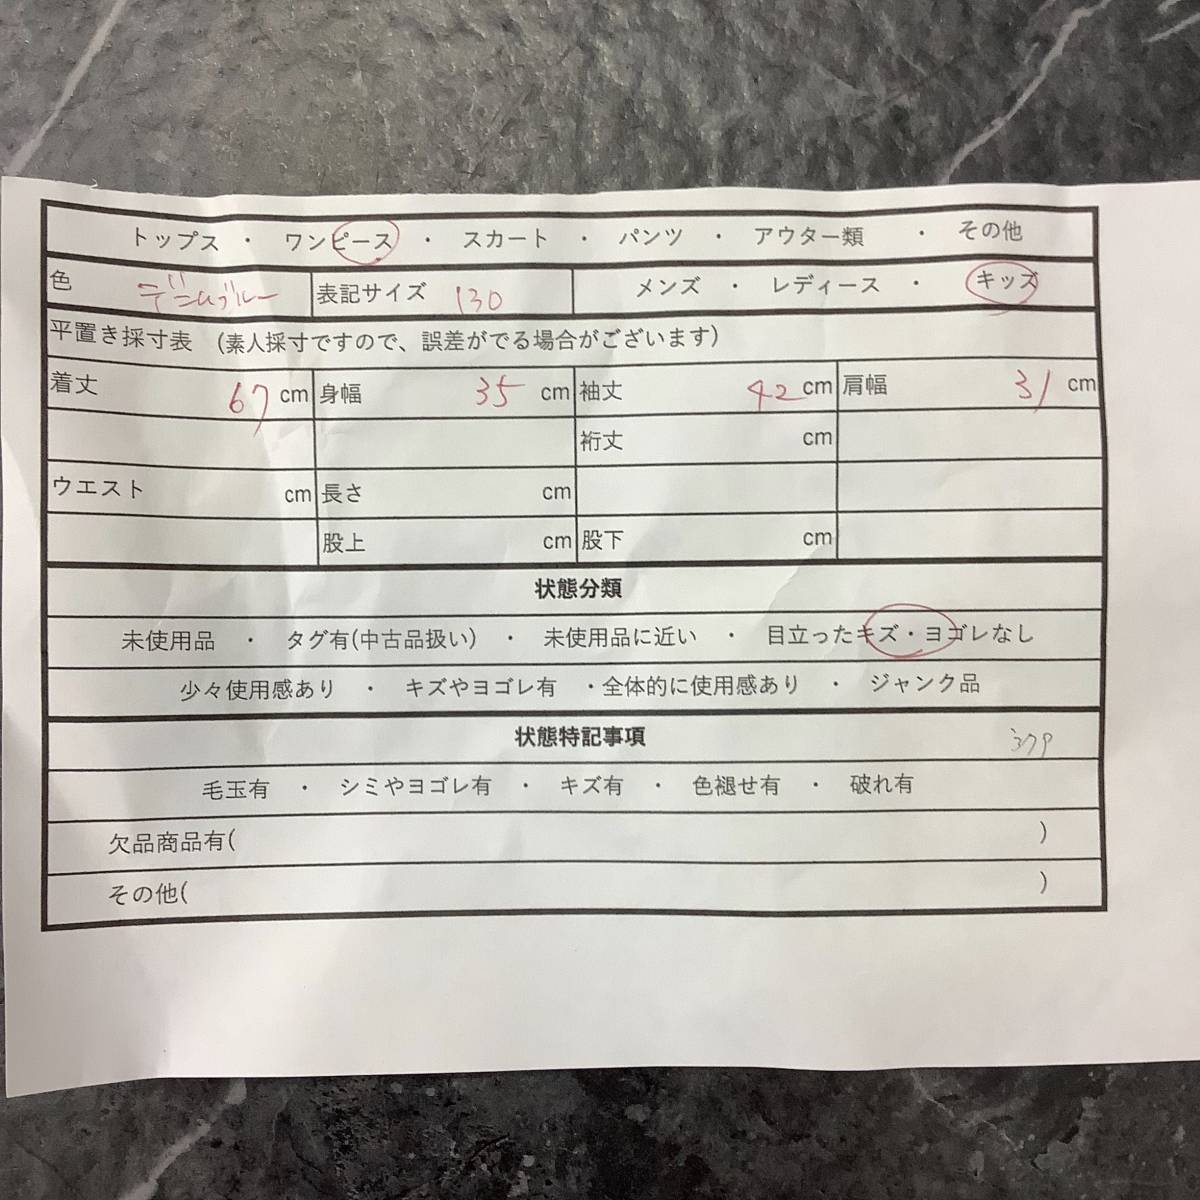 トップス ・ ワンピース ・ スカート ・ パンツ ・ アウター類 ・ その他
色 デニムブルー 表記サイズ 130 メンズ ・ レディース ・ キッズ
平置き採寸表 (素人採寸ですので、誤差がでる場合がございます)
着丈 67 cm 身幅 35 cm 袖丈 42 cm 肩幅 31 cm
裄丈 cm
ウエスト cm 長さ cm
股上 cm 股下 cm
状態分類
未使用品 ・ タグ有(中古品扱い) ・ 未使用品に近い ・ 目立ったキズ・ヨゴレなし
少々使用感あり ・ キズやヨゴレ有 ・全体的に使用感あり ・ ジャンク品
状態特記事項
毛玉有 ・ シミやヨゴレ有 ・ キズ有 ・ 色褪せ有 ・ 破れ有
欠品商品有( )
その他( )